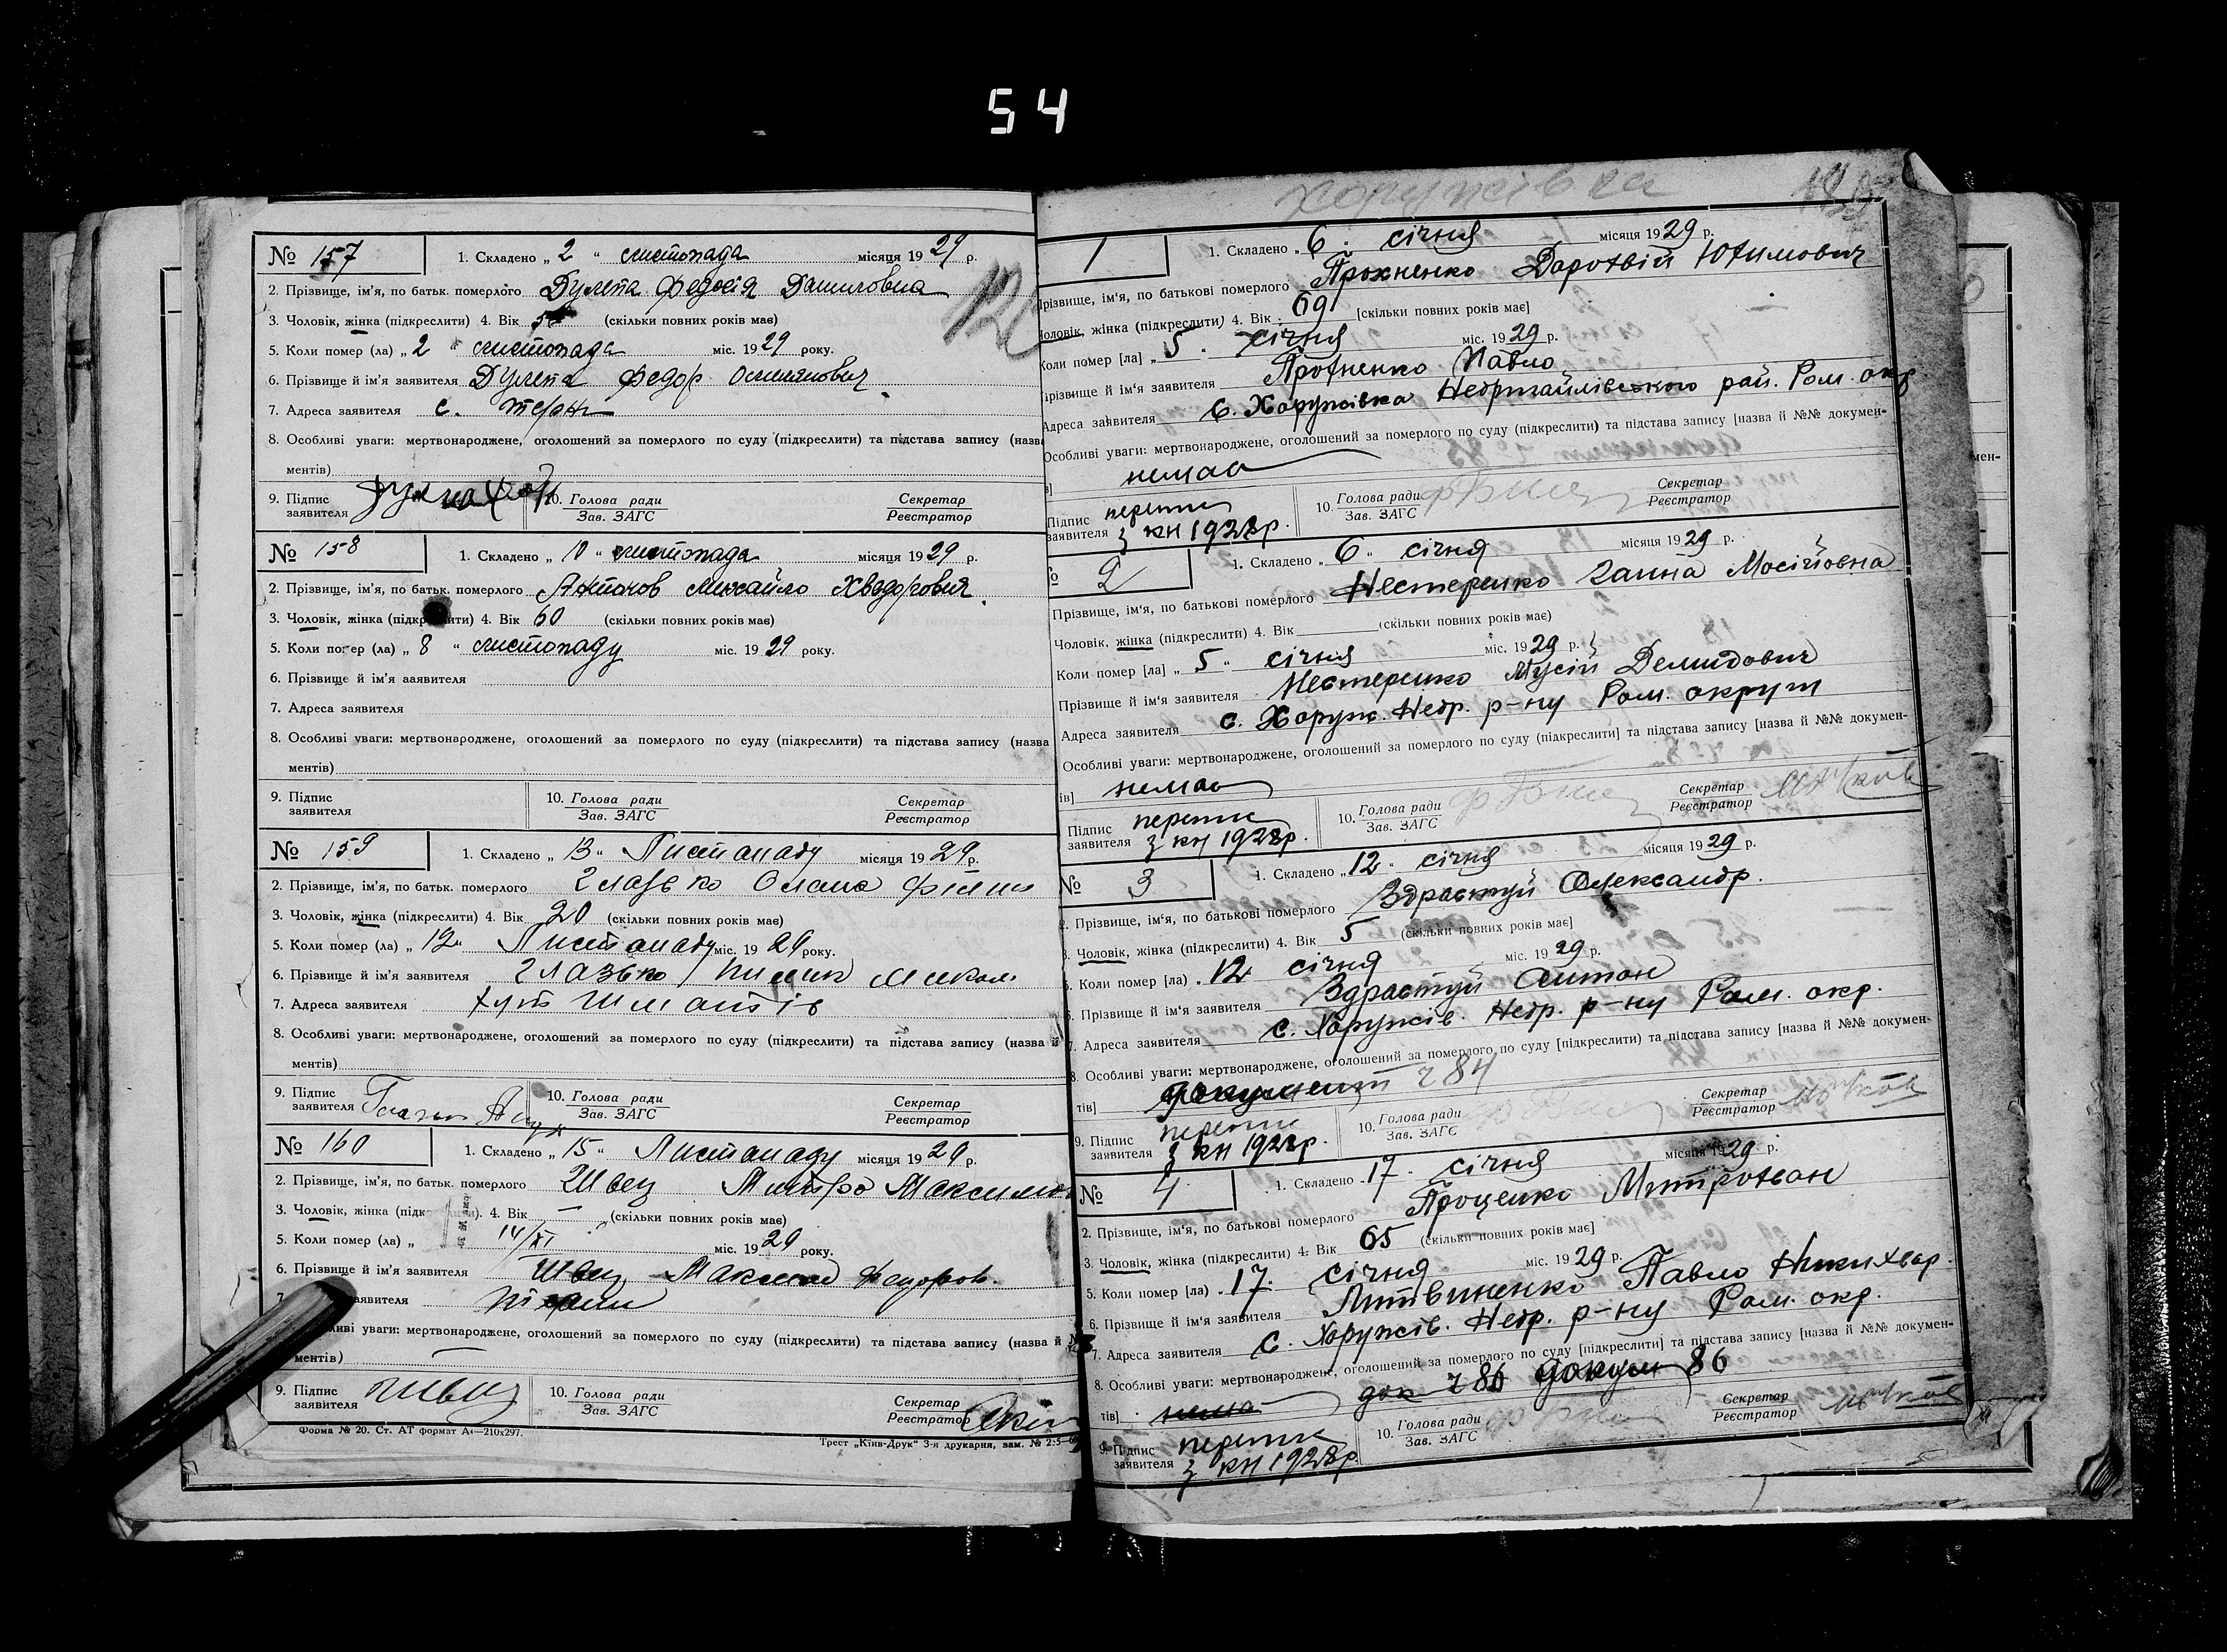 54
№ 157
1. Складено „ 2 “ листопада місяця 1929 р.
2. Прізвище, ім'я, по батьк. померлого Дулепа Федосія Даниловна
3. Чоловік, жінка (підкреслити) 4. Вік (скільки повних років має)
5. Коли помер (ла) „ 2 “ листопада міс. 1929 року.
6. Прізвище й ім'я заявителя Дулепа Федор
7. Адреса заявителя с. Терни
8. Особливі уваги: мертвонароджене, оголошений за померлого по суду (підкреслити) та підстава запису (назв
ментів)
9. Підпис заявителя 10. Голова ради Зав. ЗАГС Секретар Реєстратор
№ 158
1. Складено „ 10 “ листопада місяця 1929 р.
2. Прізвище, ім'я, по батьк. померлого Антонов Михайло Хведорович
3. Чоловік, жінка (підкр ити) 4. Вік 60 (скільки повних років має)
5. Коли помер (ла) „ 8 “ листопаду міс. 1929 року.
6. Прізвище й ім'я заявителя
7. Адреса заявителя
8. Особливі уваги: мертвонароджене, оголошений за померлого по суду (підкреслити) та підстава запису (назва
ментів)
9. Підпис заявителя 10. Голова ради Зав. ЗАГС Секретар Реєстратор
№ 159
1. Складено „ 13 “ Листопаду місяця 1929 р.
2. Прізвище, ім'я, по батьк. померлого Глазько Олена
3. Чоловік, жінка (підкреслити) 4. Вік 20 (скільки повних років має)
5. Коли помер (ла) „ 12 “ Листопаду міс. 1929 року.
6. Прізвище й ім'я заявителя Глазько
7. Адреса заявителя хут Шматів
8. Особливі уваги: мертвонароджене, оголошений за померлого по суду (підкреслити) та підстава запису (назва й
ментів)
9. Підпис заявителя 10. Голова ради Зав. ЗАГС Секретар Реєстратор
№ 160
1. Складено „ 15 “ Листопаду місяця 1929 р.
2. Прізвище, ім'я, по батьк. померлого Швец Митро Максимов
3. Чоловік, жінка (підк ). 4. Вік — (скільки повних років має)
5. Коли помер (ла) „ 14/XI міс. 1929 року.
6. Прізвище й ім'я заявителя Швец Максим Федоров.
аявителя Терни
ливі уваги: мертвонароджене, оголошений за померлого по суду (підкреслити) та підстава запису (назва й №
ментів) —
9. Підпис заявителя Швец 10. Голова ради Зав. ЗАГС Секретар Реєстратор
Форма № 20. Ст. АТ формат А4—210х297.
Трест „Київ-Друк“ 3-я друкарня, зам. №
Хоружівка
1
1. Складено „ 6 “ січня місяця 1929 р.
Прізвище, ім'я, по батькові померлого Прохненко Дорофій Юхимович
Чоловік, жінка (підкреслити) 4. Вік 69 [скільки повних років має]
Коли помер [ла] „ 5 “ січня міс. 1929 р.
Прізвище й ім'я заявителя Прохненко Павло
Адреса заявителя С. Хоружівка Недригайлівського рай. Ром. окр
Особливі уваги: мертвонароджене, оголошений за померлого по суду (підкреслити) та підстава запису [назва й №№ докумен-
в] немає
Підпис заявителя перепис з кн 1928р. 10. Голова ради Зав. ЗАГС Секретар Реєстратор
2
1. Складено „ 6 “ січня місяця 1929 р.
Прізвище, ім'я, по батькові померлого Нестеренко Ганна Мосійовна
Чоловік, жінка (підкреслити) 4. Вік (скільки повних років має)
Коли помер [ла] „ 5 “ січня міс. 1929 р.
Прізвище й ім'я заявителя Нестеренко Мусій Демидович
Адреса заявителя с. Хоруж. Недр. р-ну Ром. округи
Особливі уваги: мертвонароджене, оголошений за померлого по суду (підкреслити] та підстава запису [назва й №№ докумен-
ів] немає
Підпис заявителя перепис з кн 1928р. 10. Голова ради Зав. ЗАГС Секретар Реєстратор
№ 3
1. Складено „ 12 “ січня місяця 1929 р.
2. Прізвище, ім'я, по батькові померлого Здрастуй Олександр.
3. Чоловік, жінка (підкреслити) 4. Вік 5 (скільки повних років має]
5. Коли помер [ла) „ 12 січня міс. 1929 р.
6. Прізвище й ім'я заявителя Здрастуй Антон
7. Адреса заявителя с. Хоружів. Недр. р-ну Ром. окр.
8. Особливі уваги: мертвонароджене, оголошений за померлого по суду [підкреслити) та підстава запису [назва й №№ докумен-
тів] документ 284
9. Підпис заявителя перепис з кн 1928р. 10. Голова ради Зав. ЗАГС Секретар Реєстратор
№ 4
1. Складено „ 17 “ січня місяця 1929 р.
2. Прізвище, ім'я, по батькові померлого Проценко Митрофан
3. Чоловік, жінка (підкреслити) 4. Вік 65 (скільки повних років має]
5. Коли помер [ла) „ 17. січня міс. 1929 р.
6. Прізвище й ім'я заявителя Литвиненко Павло Никихвор.
7. Адреса заявителя с. Хоружів. Недр. р-ну Ром. окр.
8. Особливі уваги: мертвонароджене, оголошений за померлого по суду [підкреслити] та підстава запису [назва й №№ докумен-
тів] нема док 286 докум 86
9. Підпис заявителя перепис з кн 1928р 10. Голова ради Зав. ЗАГС Секретар Реєстратор